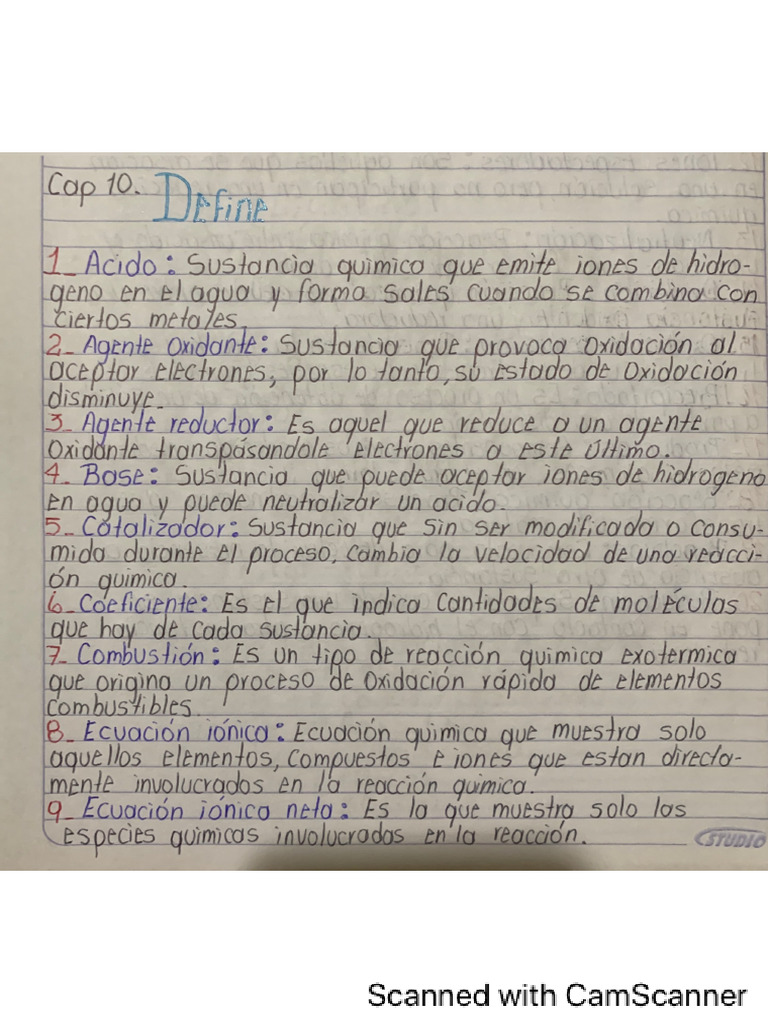 Cap 10. Define
1_ Acido: Sustancia quimica que emite iones de hidro-
geno en el agua y forma sales cuando se combina con
ciertos metales.
2_ Agente Oxidante: Sustancia que provoca oxidación al
aceptar electrones, por lo tanto, su estado de oxidación
disminuye.
3_ Agente reductor: Es aquel que reduce a un agente
oxidante transpásandole electrones a este último.
4_ Base: Sustancia que puede aceptar iones de hidrogeno
en agua y puede neutralizar un acido.
5_ Catalizador: Sustancia que sin ser modificada o consu-
mida durante el proceso, cambia la velocidad de una reacci-
ón quimica.
6_ Coeficiente: Es el que indica cantidades de moléculas
que hay de cada sustancia.
7_ Combustión: Es un tipo de reacción quimica exotermica
que origina un proceso de oxidación rápida de elementos
combustibles.
8_ Ecuación iónica: Ecuación quimica que muestra solo
aquellos elementos, compuestos e iones que estan directa-
mente involucrados en la reacción quimica.
9_ Ecuación iónica neta: Es la que muestra solo las
especies quimicas involucradas en la reacción.
STUDIO
Scanned with CamScanner